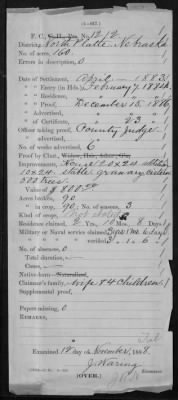 (4-097.)
F. C., No. 1212
District, North Platte, Nebraska
No. of acres, 160.
Errors in description, 0
Date of Settlement, April 1883
" " Entry (in Hds.) February 7, 1884
" " Residence,
" " Proof, December 15, 1886
" " Advertisement, "
" of Certificate, " 23 "
Officer taking proof, County Judge
No. of weeks advertised, 6
Proof by Clmt.,
Improvements, House 20x24
10x24 stable, granary, cistern
500 trees.
Value $ 800.00
Acres broken, 90
" in crop, 90 No. of seasons, 3
Kind of crops,
Residence claimed, 2 Yrs. 10 Mos. 8 Days
Military or Naval service claimed,
" " " verified 3. 1. 6
No. of absences, 0
Total duration, —
Causes, —
Native-born—
Claimant's family, wife & 4 children
Supplemental proof,
Papers missing, 0
Remarks,
Examined 12 day of November, 1888.
J. Waring
(OVER.)